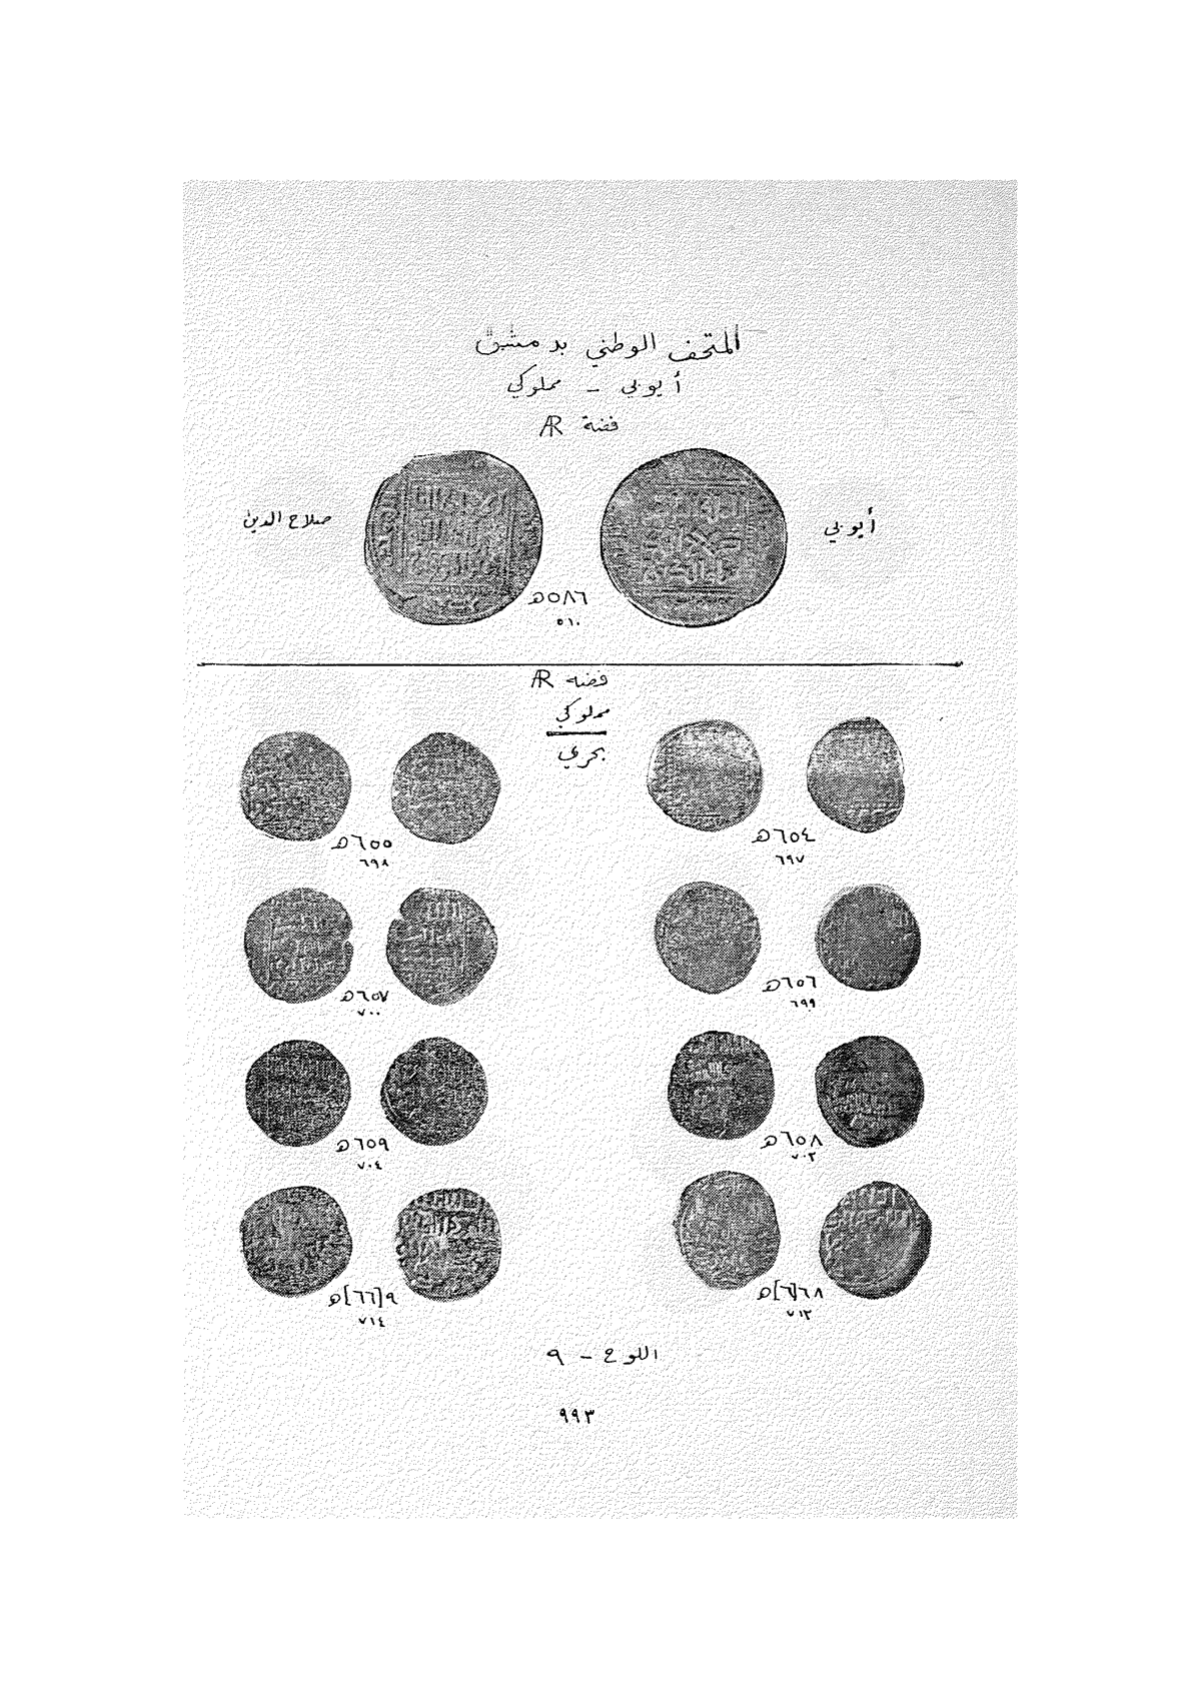 المتحف الوطني بدمشق
أيوبي - مملوكي
فضة AR
أيوبي
صلاح الدين
٥٨٦هـ
٥١٠
فضة AR
مملوكي
بحري
٦٥٤هـ
٦٩٧
٦٥٥هـ
٦٩٨
٦٥٦هـ
٦٩٩
٦٥٧هـ
٧٠٠
٦٥٨هـ
٧٠٢
٦٥٩هـ
٧٠٤
[٦]٦٨هـ
٧١٣
[٦٦]٩هـ
٧١٤
اللوح - ٩
٩٩٣